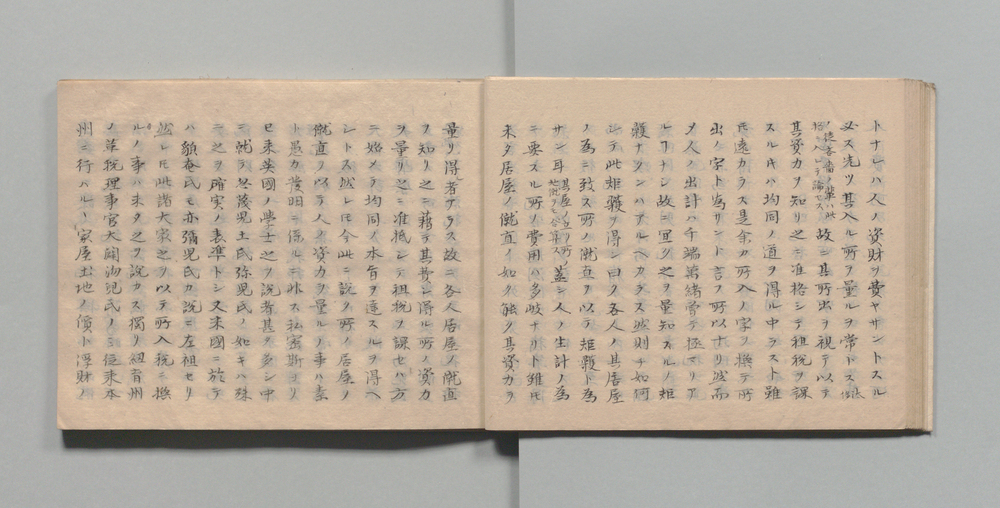 トナレハ人ノ資財ヲ費ヤサントスル
必ス先ツ其入ル所ヲ量ルヲ常トス
故ニ其所出ヲ視テ以テ
其資力ヲ知リ之ニ准格シテ租税ヲ課
スル片ハ均同ノ道ヲ得ル中ラスト雖
氏遠カラス是余カ所入ノ字ヲ換テ所
出ノ字ト為サント言フ所以ナリ然而
メ人ノ出計ハ千端萬緒嘗テ極マリア
ル丁ナシ故ニ冝ク之ヲ量知スルノ矩
矱ナクンハアルヘカラス然則チ如何
シテ此矩矱ヲ得ン曰ク各人ノ其居屋
ノ為ニ致ス所ノ僦直ヲ以テ矩矱ト為
サン耳 蓋シ人ノ生計ノ為
ニ要スル所ノ費用ハ多岐ナリト雖氏
未タ居屋ノ僦直ノ如ク能ク其資力ヲ
量リ得ル者アラス故ニ各人居屋ノ僦直
ヲ知リ之ニ藉テ其費シ得ル所ノ資力
ヲ量リ之ニ准抵シテ租税ヲ課セハ方
ニ始メテ均同ノ本旨ヲ達スルヲ得ヘ
シトス然レ氏今此ニ説ク所ノ居屋ノ
僦直ヲ以テ人ノ資力ヲ量ルノ事ハ素
ト愚カ發明ニ係ルニ非ス私密斯氏ヨリ
已来英國ノ學士之ヲ説者甚タ多シ中
ニ就テ冬茂児土氏弥児氏ノ如キハ殊
ニ之ヲ確実ノ表準トシ又米國ニ於テ
ハ額奄氏モ亦彌児氏カ説ニ左袒セリ
然レ氏此諸大家之ヲ以テ所入税ニ換
ルノ事ハ未タ之ヲ説カス獨リ紐育州
ノ革税理事官大闢泑児氏ノミ従来本
州ニ行ハルヽ家屋土地ノ價ト浮財ノ